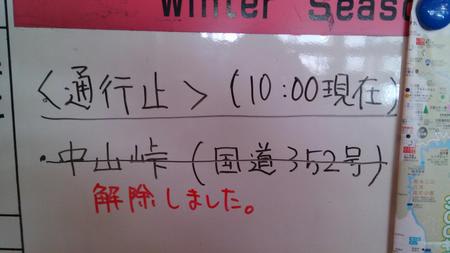 Winter Seas
<通行止> (10:00現在)
・中山峠 (国道352号)
解除しました。